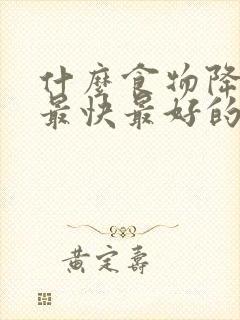 什麼食物降
最快最好的
黄定寿